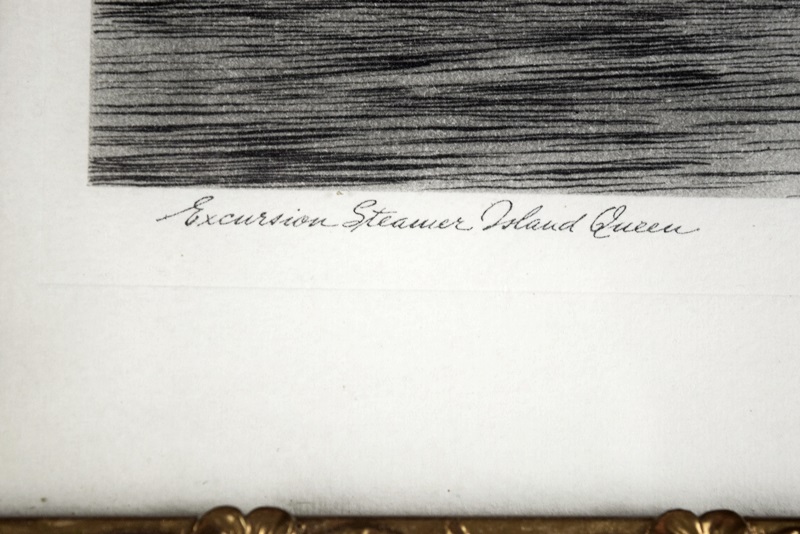 Excursion Steamer Island Queen